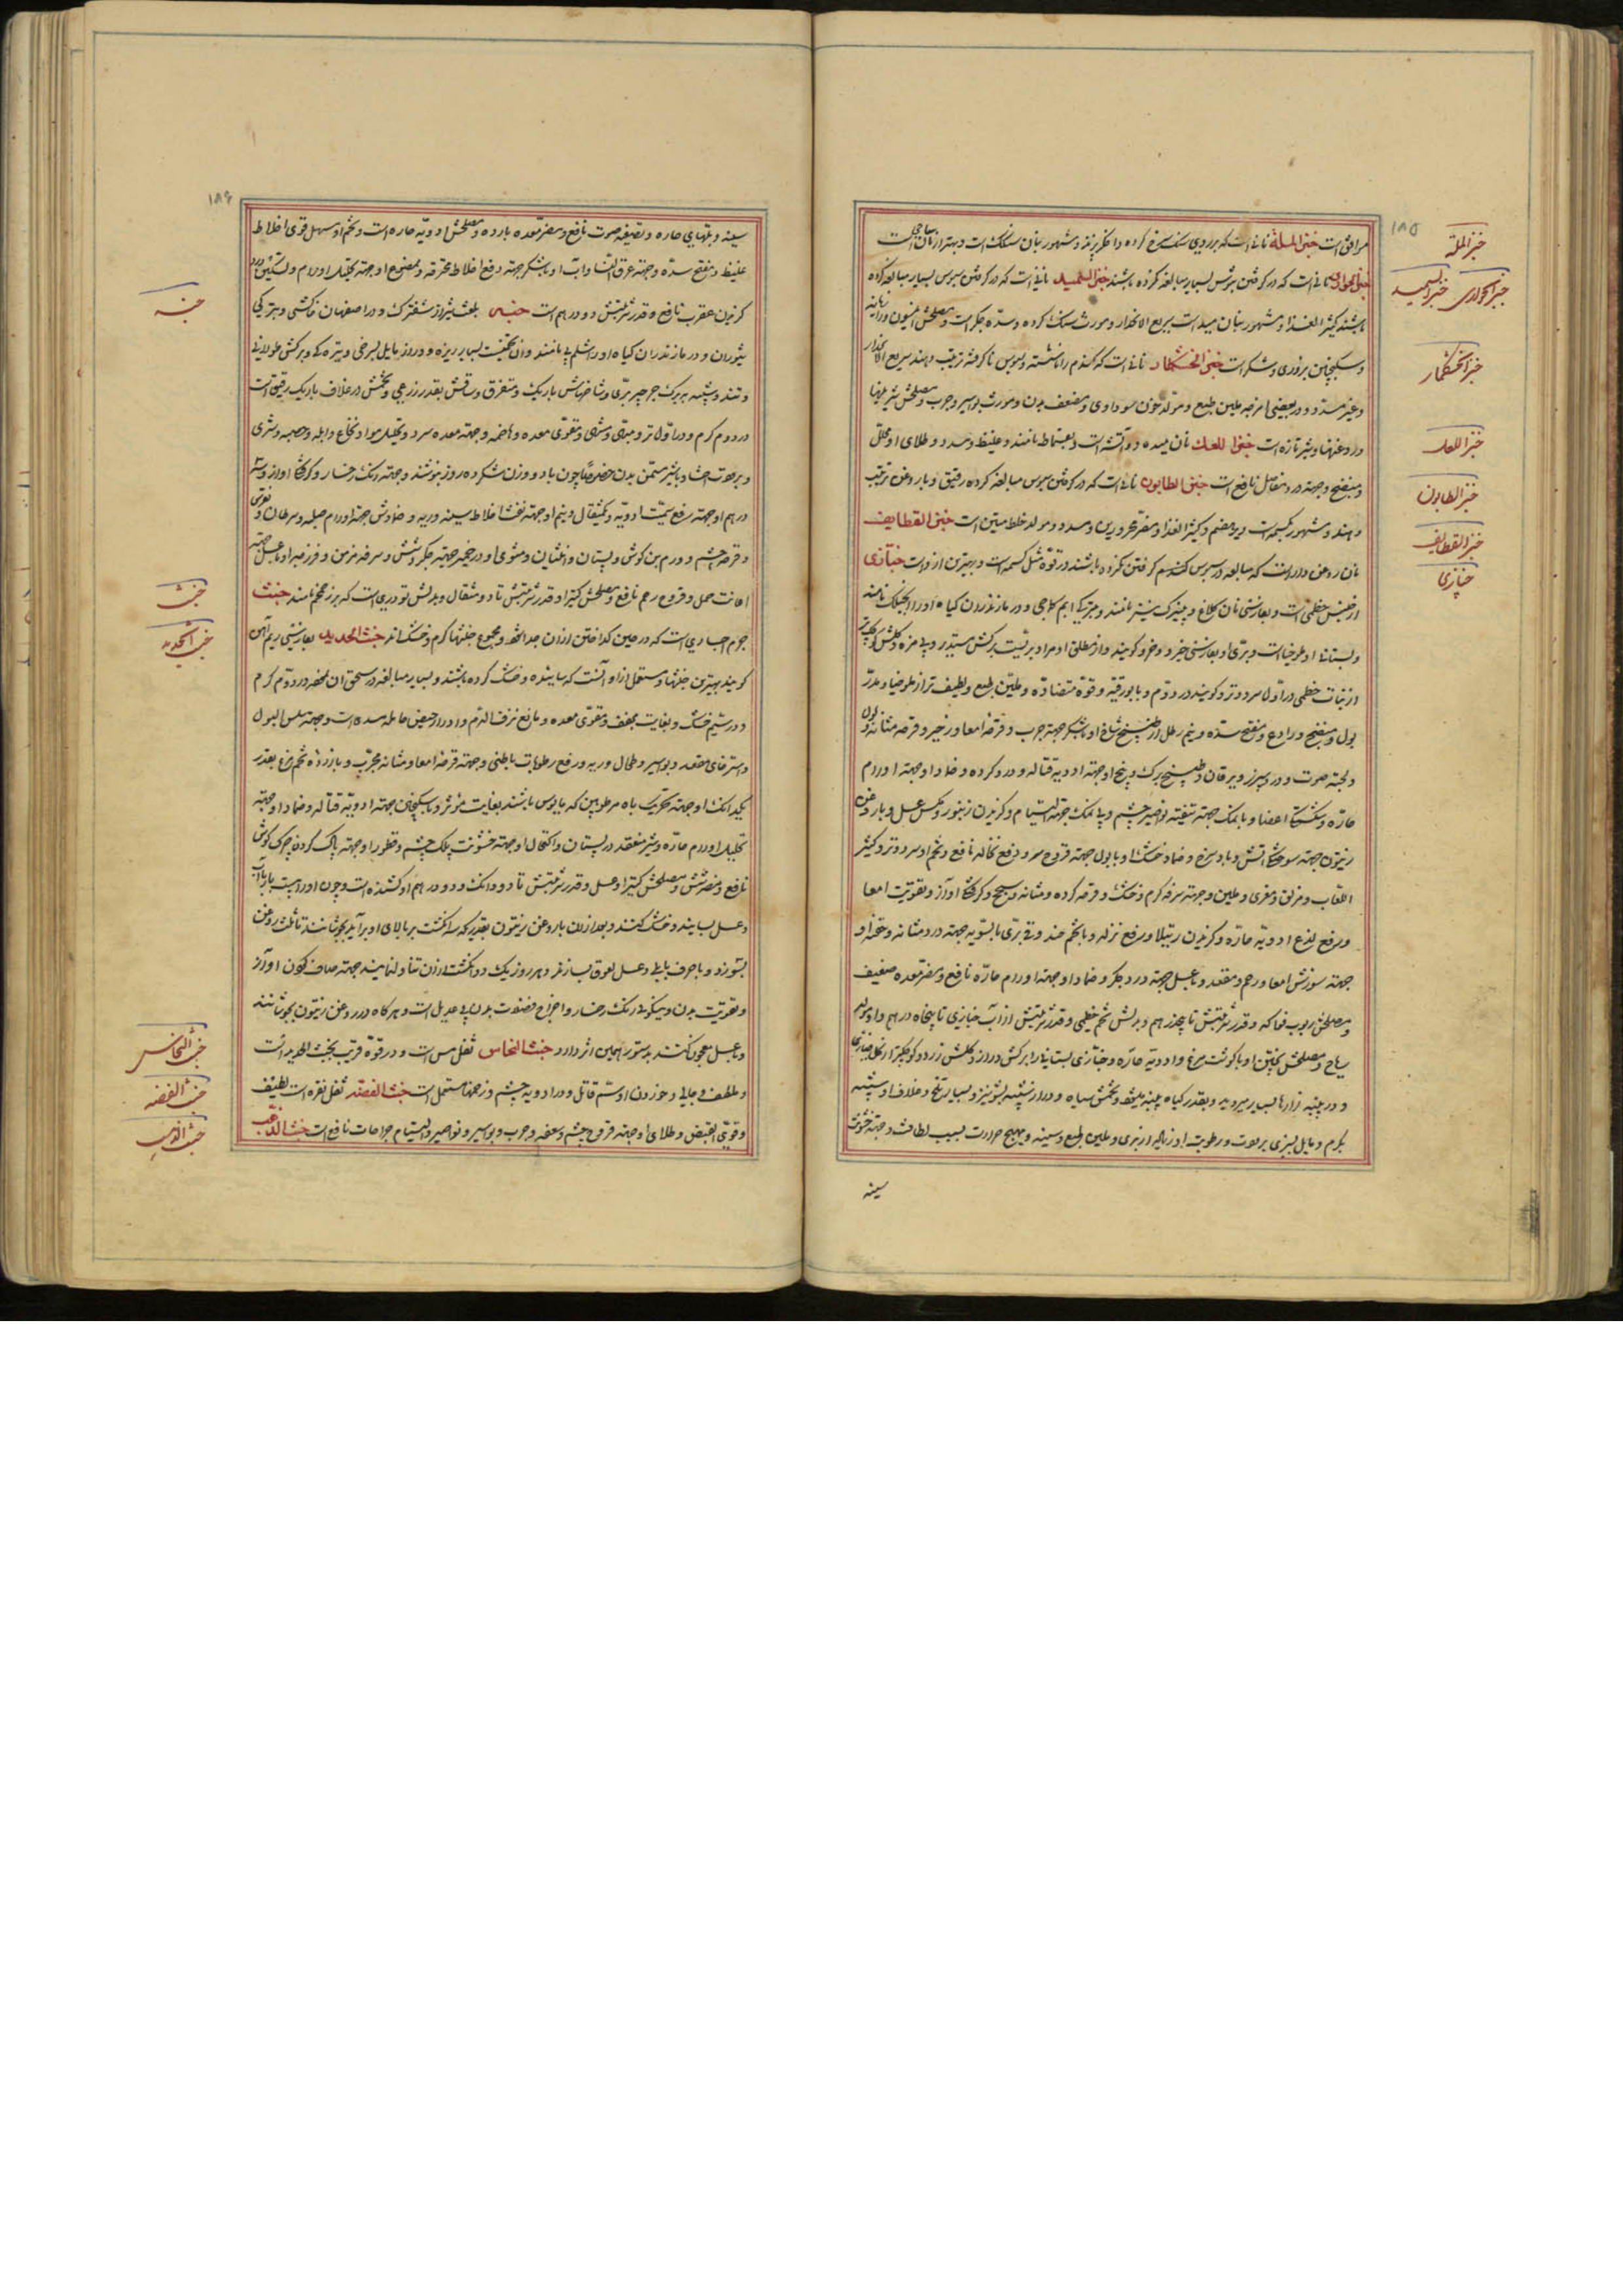 ۱۸۵
موافق است خبز الملة نانی است که بر روی سنک سرخ کرده یا خاکستر پزند و مشهور بنان سنکک است و بهتر از نان ساجی است
خبز الحواری نانی است که در کرفتن سبوس بسیار مبالغه نکرده باشند خبز السمید نانی است که در کرفتن سبوس بسیار مبالغه کرده
باشند کثیر الغذا و مشهور بنان میده است بطیء الانحدار و مورث سنک کرده و سده جکر است و مصلحش انیسون و رازیانه
و سکنجبین بزوری و شکر است خبز الخشکار نانی است که کندم را ناشسته و سبوس ناکرفته ترتیب دهند سریع الانحدار
و غیر مسدد و در بعضی امزجه ملین طبع و مولد خون سوداوی و مضعف بدن و مورث بواسیر و جرب و مصلحش شیرینیها
و روغنها و شیر تازه است خبز المعلک نان میده دو آتشه است و بقسماط نامند و غلیظ و مسدد و طلای او محلل
و منضج و جهت درد مفاصل نافع است خبز الطابون نانی است که در کرفتن سبوس مبالغه کرده رقیق و با روغن ترتیب
دهند و مشهور بکسمه است دیرهضم و کثیر الغذا و مضر محرورین و مسدد و مولد خلط متین است خبز القطایف
نان روغن دار است که مبالغه در سبوس کندم کرفتن نکرده باشند در قوة مثل کسمه است و بهترین از و است خبازی
از جنس خطمی است و بفارسی نان کلاغ و پنیرک نیز نامند و بترکی ابم کماجی و در مازندران کیاه او را
و بستانی او ملوخیا است و بری او بفارسی خرو و خرو کویند و از مطلق او مراد بریست برکش مستدیر و بی مزه و کلش کوچکتر
از نبات خطمی در اول سرد و تر و کویند در دوم و با بورقیه و قوة متضاده و ملین طبع و لطیف تر از ملوخیا و مدر
بول و منضج و رادع و مفتح سده و نیم رطل از طبیخ شاخ او با شکر جهت جرب و قرحه امعا و زحیر و قرحه مثانه و بول
و بحة صوت و درد سپرز و یرقان و طبیخ برک و بیخ او جهت ادویه قتاله و درد کرده و ضماد او جهت اورام
حاره و شکستکی اعضا و با نمک جهت تنقیه نواصیر چشم و بی نمک جهت التیام و کزیدن زنبور و مکس عسل و با روغن
زیتون جهت سوختکی آتش و باد سرخ و ضماد خشک او با بول جهت قروح سر و رفع نخاله نافع و تخم او سرد و تر و کثیر
اللعاب و مزلق و مغری و ملین و جهت سرفه کرم و خشک و قرحه کرده و مثانه و سحج و کرفتکی آواز و تقویت امعا
و رفع لذع ادویه حاره و کزیدن رتیلا و رفع نزله و با تخم حندقوقی بری بالسویه جهت درد مثانه و حقنه او
جهت سوزش امعا و رحم و مقعد و با عسل جهت درد جکر و ضماد او جهت اورام حاره نافع و مضر معده ضعیف
و مصلحش ربوب فواکه و قدر شربتش تا پنج درهم و بدلش تخم خطمی و قدر شربتش از آب خبازی تا پنجاه درهم
و مصلحش پختن او با کوشت مرغ و ادویه حاره و خبازی بستانی را برکش دراز و کلش زرد و کوچکتر از کل خبازی
و در پنبه زارها بسیار میروید و بقدر کیاه پنبه میشود و تخمش سیاه و دراز شبیه بشونیز و بسیار تلخ و غلاف او شبیه
بکرم و مایل بسبزی برودت و رطوبت او زیاده از بری و ملین طبع و سینه و مهیج حرارت بسبب لطافت و جهت خشونت
سینه
خبز الملة
خبز الحواری
خبز السمید
خبز الخشکار
خبز المعلک
خبز الطابون
خبز القطایف
خبازی
۱۸۶
سینه و تبهای حاره و تصفیه صوت نافع و مضر معده بارده و مصلحش ادویه حاره است و تخم او مسهل قوی اخلاط
غلیظ و مفتح سده و جهت عرق النسا و آب او با شکر جهت دفع اخلاط محترقه و مضوغ او جهت تحلیل اورام و تسکین درد
کزیدن عقرب نافع و قدر شربتش دو درهم است خبه بلغت شیراز شفترک و در اصفهان خاکشی و بترکی
شوران و در مازندران کیاه او را شلم بی نامند و آن تخمیست بسیار ریزه و دراز مایل بسرخی و تیره که و برکش طولانی
و تند و شبیه ببرک جرجیر بری و شاخهاش باریک و متفرق و ساقش بقدر ذرعی و تخمش در غلاف باریک رقیق است
در دوم کرم و در اول تر و مبهی و مشهی و مقوی معده و هاضمه و جهت معده سرد و تحلیل مواد نخاع و ابله و حصبه و شری
و برودت احشا و با شیر مسمن بدن خصوصا چون با دو وزن شکر ده روز بنوشند و جهت رنک رخسار و کرفتکی آواز و سه
درهم او جهت رفع سمیت ادویه و یکمثقال و نیم او جهت نفث اخلاط سینه و ریه و ضمادش جهت اورام صلبه و سرطان و نقرس
و قرحه چشم و ورم بن کوش و پستان و انثیان و مشوی او در خمیر جهت جکر و شش و سرفه مزمن و فرزجه او با عسل جهت
اعانت حمل و قروح رحم نافع و مصلحش کتیرا و قدر شربتش تا دو مثقال و بدلش تودری است که بزر خمخم نامند خبث
جرم اجسادی است که در حین کداختن از آن جدا شود و مجموع خبثها کرم و خشک اند خبث الحدید بفارسی ریم آهن
کویند بهترین خبثها و مستعمل از او آنست که ساییده و خشک کرده باشند و بسیار مبالغه در سحق آن لحظه در دوم کرم
و در سیم خشک و بغایت مجفف و مقوی معده و مانع نزف الدم و ادرار حیض حامله مسده است و جهت سلس البول
و استرخای مقعد و بواسیر و طحال و ریه و رفع رطوبات باطنی و جهت قرحه امعا و مثانه مجرب و با زرده تخم مرغ بقدر
یکدانک او جهت تحریک باه مرطوبین که مایوس باشند بغایت مؤثر و با سکنجبین جهت ادویه قتاله و ضماد او جهت
تحلیل اورام حاره و شیر منعقد در پستان و اکتحال او جهت خشونت پلک چشم و قطور او جهت پاک کردن چرک کوش
نافع و مضر شش و مصلحش کتیرا و عسل و قدر شربتش تا دو دانک و دو درهم او کشنده است و چون او را بیست بار با آب
و عسل بسایند و خشک کنند و بعد از آن با روغن زیتون بقدریکه سه انکشت بر بالای او برآید بجوشانند تا ثلث روغن
بسوزد و با حرف بابلی و عسل لعوق بسازند و هر روز یک دو انکشت از آن تناول نمایند جهت صاف کردن آواز
و تقویت بدن و نیکوئی رنک رخسار و اخراج فضلات بدن بی عدیل است و هر کاه در روغن زیتون بجوشانند
و با عسل معجون کنند بدستور همین اثر دارد خبث النحاس ثفل مس است و در قوة قریب بخبث الحدید است
و ملطف و جالی و خوردن او سم قاتل و در ادویه چشم و زخمها مستعمل است خبث الفضه ثفل نقره است لطیف
و قوی القبض و طلای او جهت قروح چشم و سعفه و جرب و بواسیر و نواصیر و التیام جراحات نافع است خبث الذهب
خبه
خبث
خبث الحدید
خبث النحاس
خبث الفضه
خبث الذهب